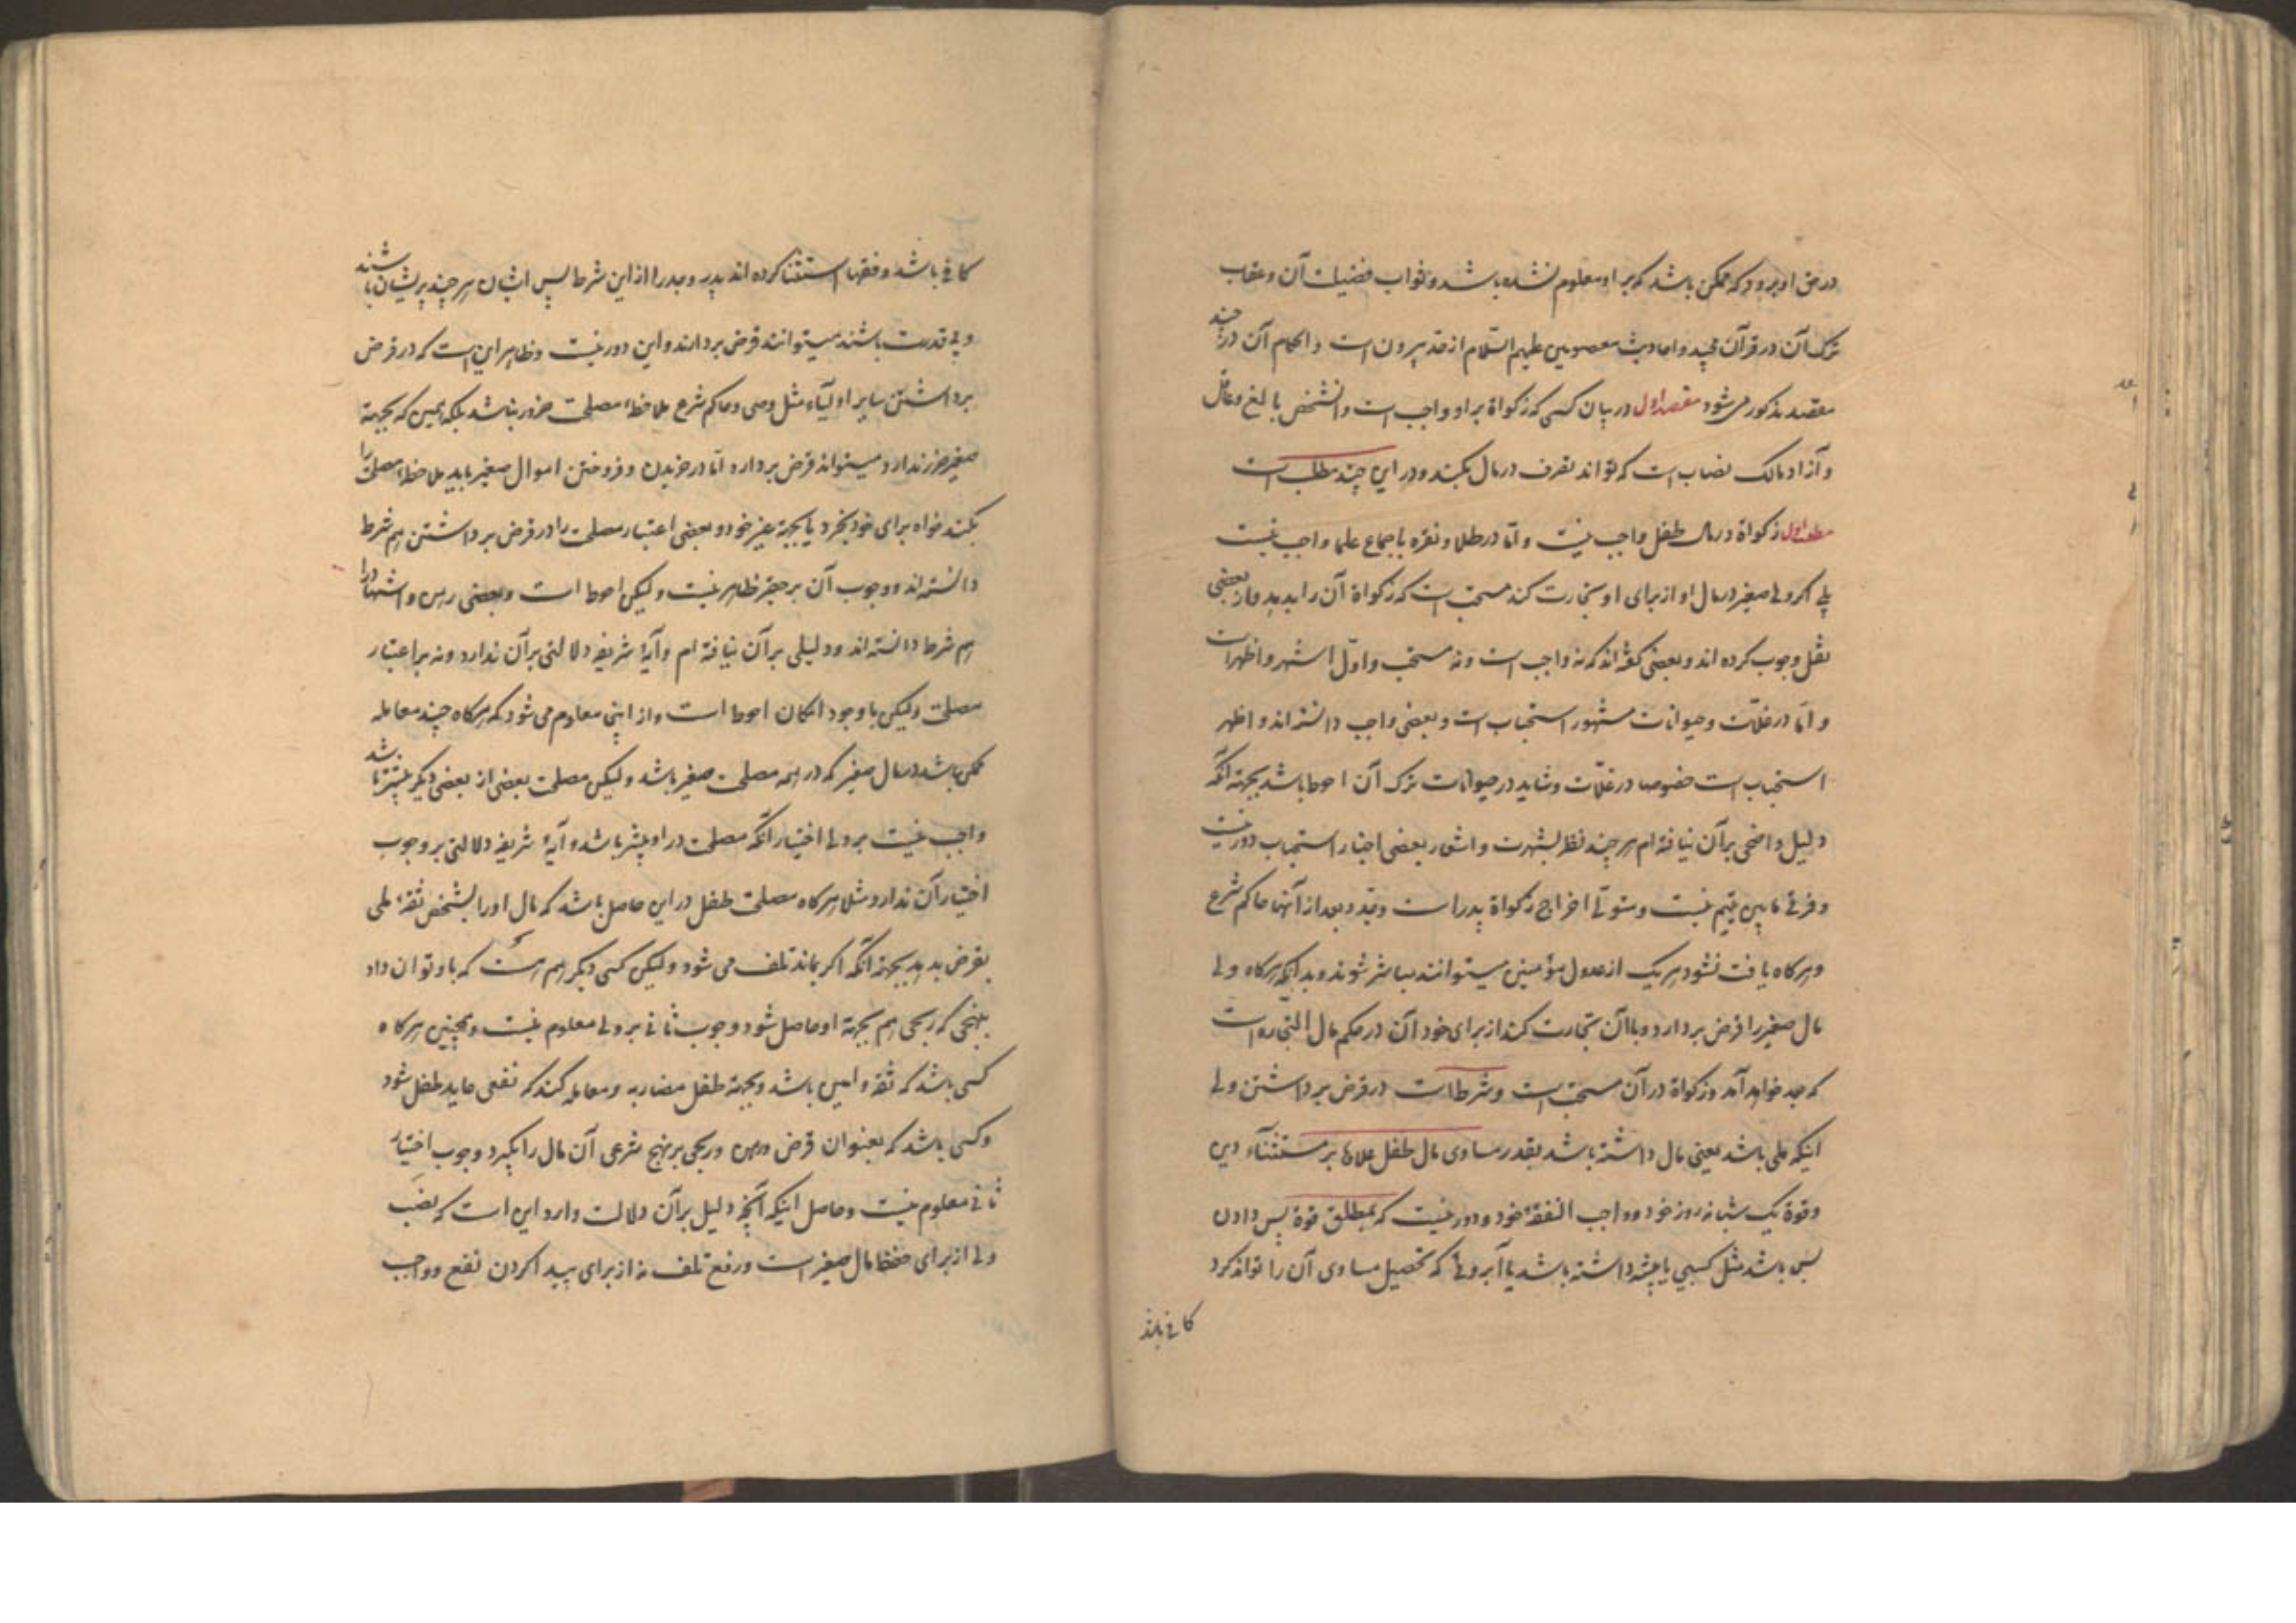 در حق او برود که ممکن باشد که بر او معلوم نشده باشد و ثواب فضیلت آن و عقاب
ترک آن در قرآن مجید و احادیث معصومین علیهم السّلام از حد بیرون است و احکام آن در چند
مقصد مذکور می شود مقصد اول در بیان کسی که زکواة بر او واجب است و آنشخص بالغ و عاقل
و آزاد و مالک نصاب است که تواند تصرف در مال بکند و در این چند مطلب است
مطلب اول زکواة در مال طفل واجب نیست و اما در طلا و نقره باجماع علما واجب نیست
بلی اگر ولی صغیر در مال او از برای او تجارت کند مستحب است که زکواة آن را بدهد و از بعضی
نقل وجوب کرده اند و بعضی گفته اند که نه واجب است و نه مستحب و اوّل اشهر و اظهر است
و امّا در غلّات و حیوانات مشهور استحباب است و بعضی واجب دانسته اند و اظهر
استحباب است خصوصا در غلّات و شاید در حیوانات ترک آن احوط باشد بجهة آنکه
دلیل واضحی بر آن نیافته ام هر چند نظر بشهرت و اشعار بعضی اخبار استحباب دور نیست
و فرقی مابین یتیم نیست و متولّی اخراج زکواة پدر است و جدّ و بعد از آنها حاکم شرع
و هرکاه یافت نشود هر یک از عدول مؤمنین میتوانند مباشر شوند و بدانکه هرکاه ولی
مال صغیر را قرض بردارد و با آن تجارت کند از برای خود آن در حکم مال التجاره است
که بعد خواهد آمد و زکواة در آن مستحب است و شرط است در قرض برداشتن ولی
اینکه ملی باشد یعنی مال داشته باشد بقدر مساوی مال طفل علاوه بر مستثنآء دین
و قوة یک شبانه روز خود و واجب النفقهٔ خود و دور نیست که بمطلق قوة پس دادن
بس باشد مثل کسبی یا پیشه داشته باشد یا آبروئی که تحصیل مساوی آن را تواند کرد
کافی باشد
کافی باشد و فقها استثنا کرده اند پدر و جد را از این شرط پس ایشان هر چند پریشان باشند
و بی قدرت باشند میتوانند قرض بردارند و این دور نیست و ظاهر این است که در قرض
برداشتن سایر اولیآء مثل وصی و حاکم شرع ملاحظهٔ مصلحت ضرور نباشد بلکه همین که بجهة
صغیر ضرر ندارد میتواند قرض بردارد امّا در خریدن و فروختن اموال صغیر باید ملاحظهٔ مصلحت را
بکند خواه برای خود بخرد یا بجهة غیر خود و بعضی اعتبار مصلحت را در قرض برداشتن هم شرط
دانسته اند و وجوب آن بر حقیر ظاهر نیست و لیکن احوط است و بعضی رهن و اشهاد را
هم شرط دانسته اند و دلیلی بر آن نیافته ام و آیهٔ شریفه دلالتی بر آن ندارد و نه بر اعتبار
مصلحت و لیکن با وجود امکان احوط است و از اینجا معلوم می شود که هرکاه چند معامله
ممکن باشد در مال صغیر که در همه مصلحت صغیر باشد و لیکن مصلحت بعضی از بعضی دیگر بیشتر باشد
واجب نیست بر ولی اختیار آنکه مصلحت در او بیشتر باشد و آیهٔ شریفه دلالتی بر وجوب
اختیار آن ندارد مثلا هرکاه مصلحت طفل در این حاصل باشد که مال او را بشخص ثقهٔ ملی
بقرض بدهد بجهة آنکه اکر بماند تلف می شود و لیکن کسی دیکر هم هست که باو توان داد
بنهجی که ربحی هم بجهة او حاصل شود وجوب ثانی بر ولی معلوم نیست و همچنین هرکاه
کسی باشد که ثقه و امین باشد و بجهة طفل مضاربه و معامله کند که نفعی عاید طفل شود
و کسی باشد که بعنوان قرض و رهن و ربحی بر نهج شرعی آن مال را بگیرد وجوب اختیار
ثانی معلوم نیست و حاصل اینکه آنچه دلیل بر آن دلالت دارد این است که نصب
ولی از برای حفظ مال صغیر است و رفع تلف نه از برای پیدا کردن نفع و واجب